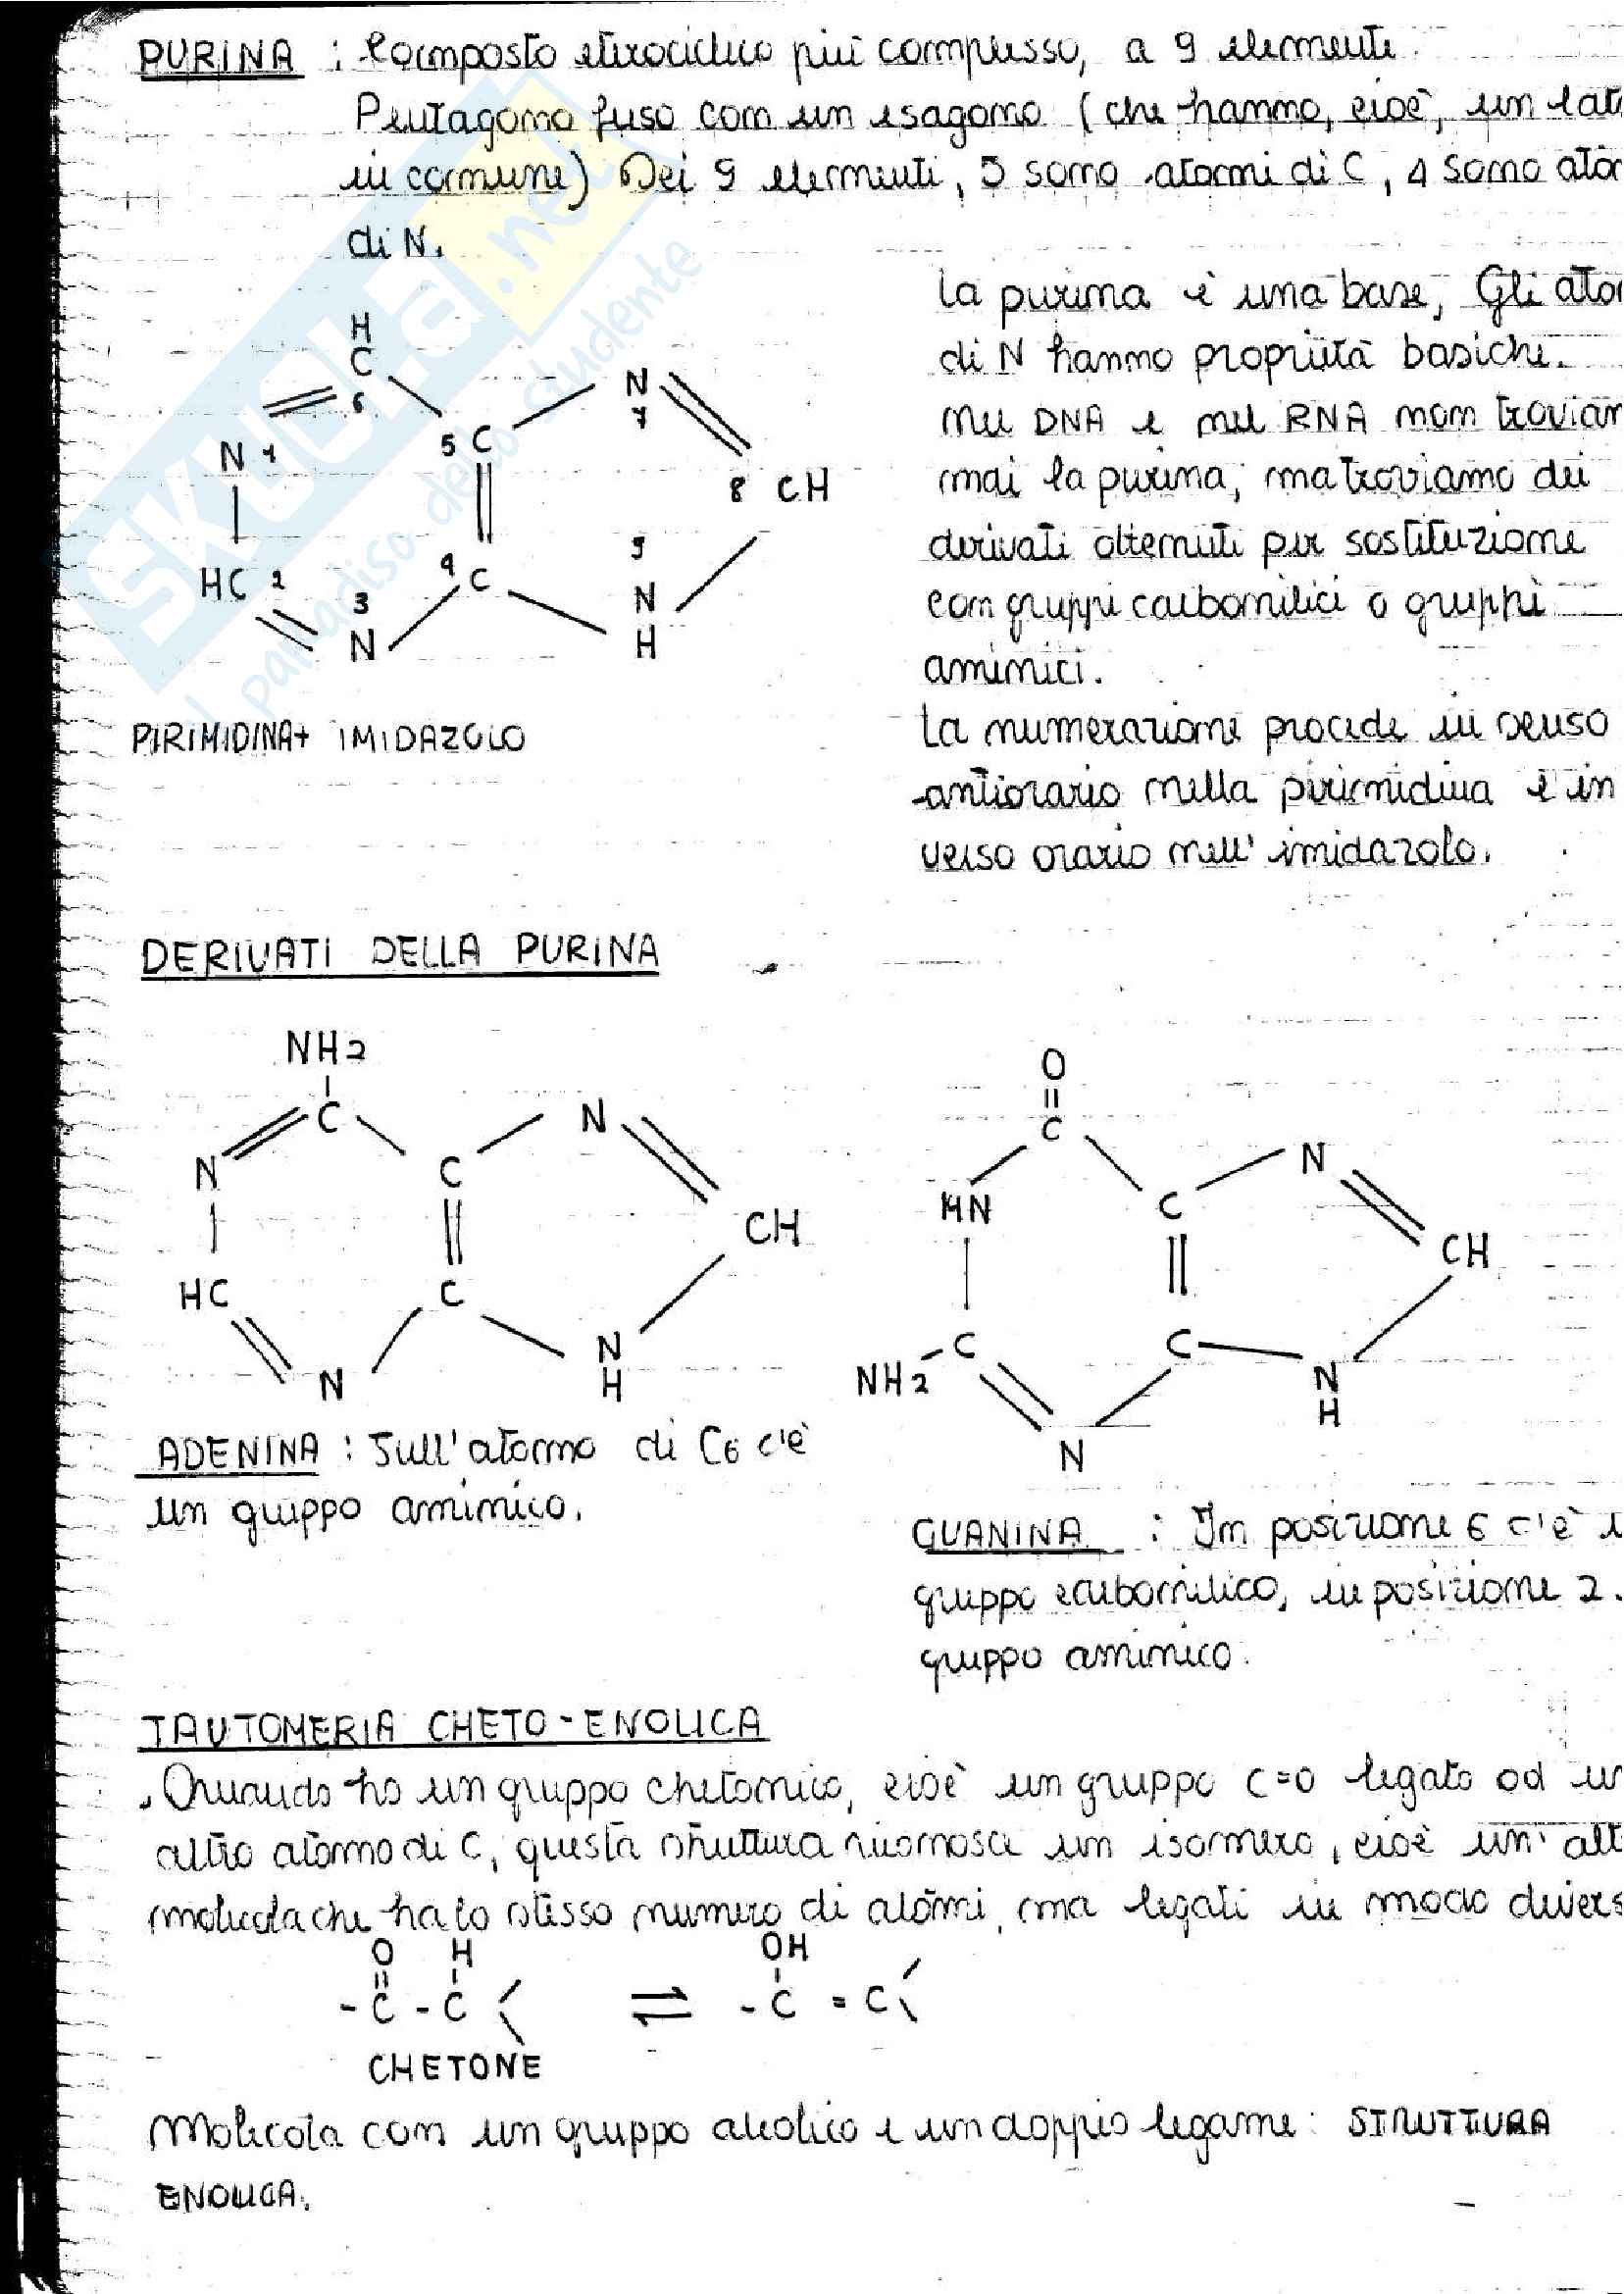 PURINA : Composto eterociclico più complesso, a 9 elementi.
Pentagono fuso con un esagono (che hanno, cioè, un lato
in comune) Dei 9 elementi, 5 sono atomi di C, 4 sono ato
di N.
H
C
6
N 1
5 C
N
7
8 CH
HC 2
3
N
4
C
9
N
H
PIRIMIDINA + IMIDAZOLO
La purina è una base, Gli ato
di N hanno proprietà basiche.
Nel DNA e nel RNA non trovia
mai la purina, ma troviamo dei
derivati ottenuti per sostituzione
con gruppi carbonilici o gruppi
aminici.
La numerazione procede in senso
antiorario nella pirimidina e in
verso orario nell' imidazolo.
DERIVATI DELLA PURINA
NH2
C
N
C
N
CH
HC
C
N
N
H
O
C
HN
C
N
CH
C
NH2
C
N
N
H
ADENINA : Sull'atomo di C6 c'è
un gruppo aminico.
GUANINA : In posizione 6 c'è
gruppo carbonilico, in posizione 2
gruppo aminico.
TAUTOMERIA CHETO-ENOLICA
Quando ho un gruppo chetonico, cioè un gruppo C=O legato ad un
altro atomo di C, questa struttura riconosce un isomero, cioè un' alt
molecola che ha lo stesso numero di atomi, ma legati in modo divers
O H OH
- C - C ⇌ - C = C
CHETONE
Molecola con un gruppo alcolico e un doppio legame: STRUTTURA
ENOLICA.
SKUOLA.net
il paradiso dello studente